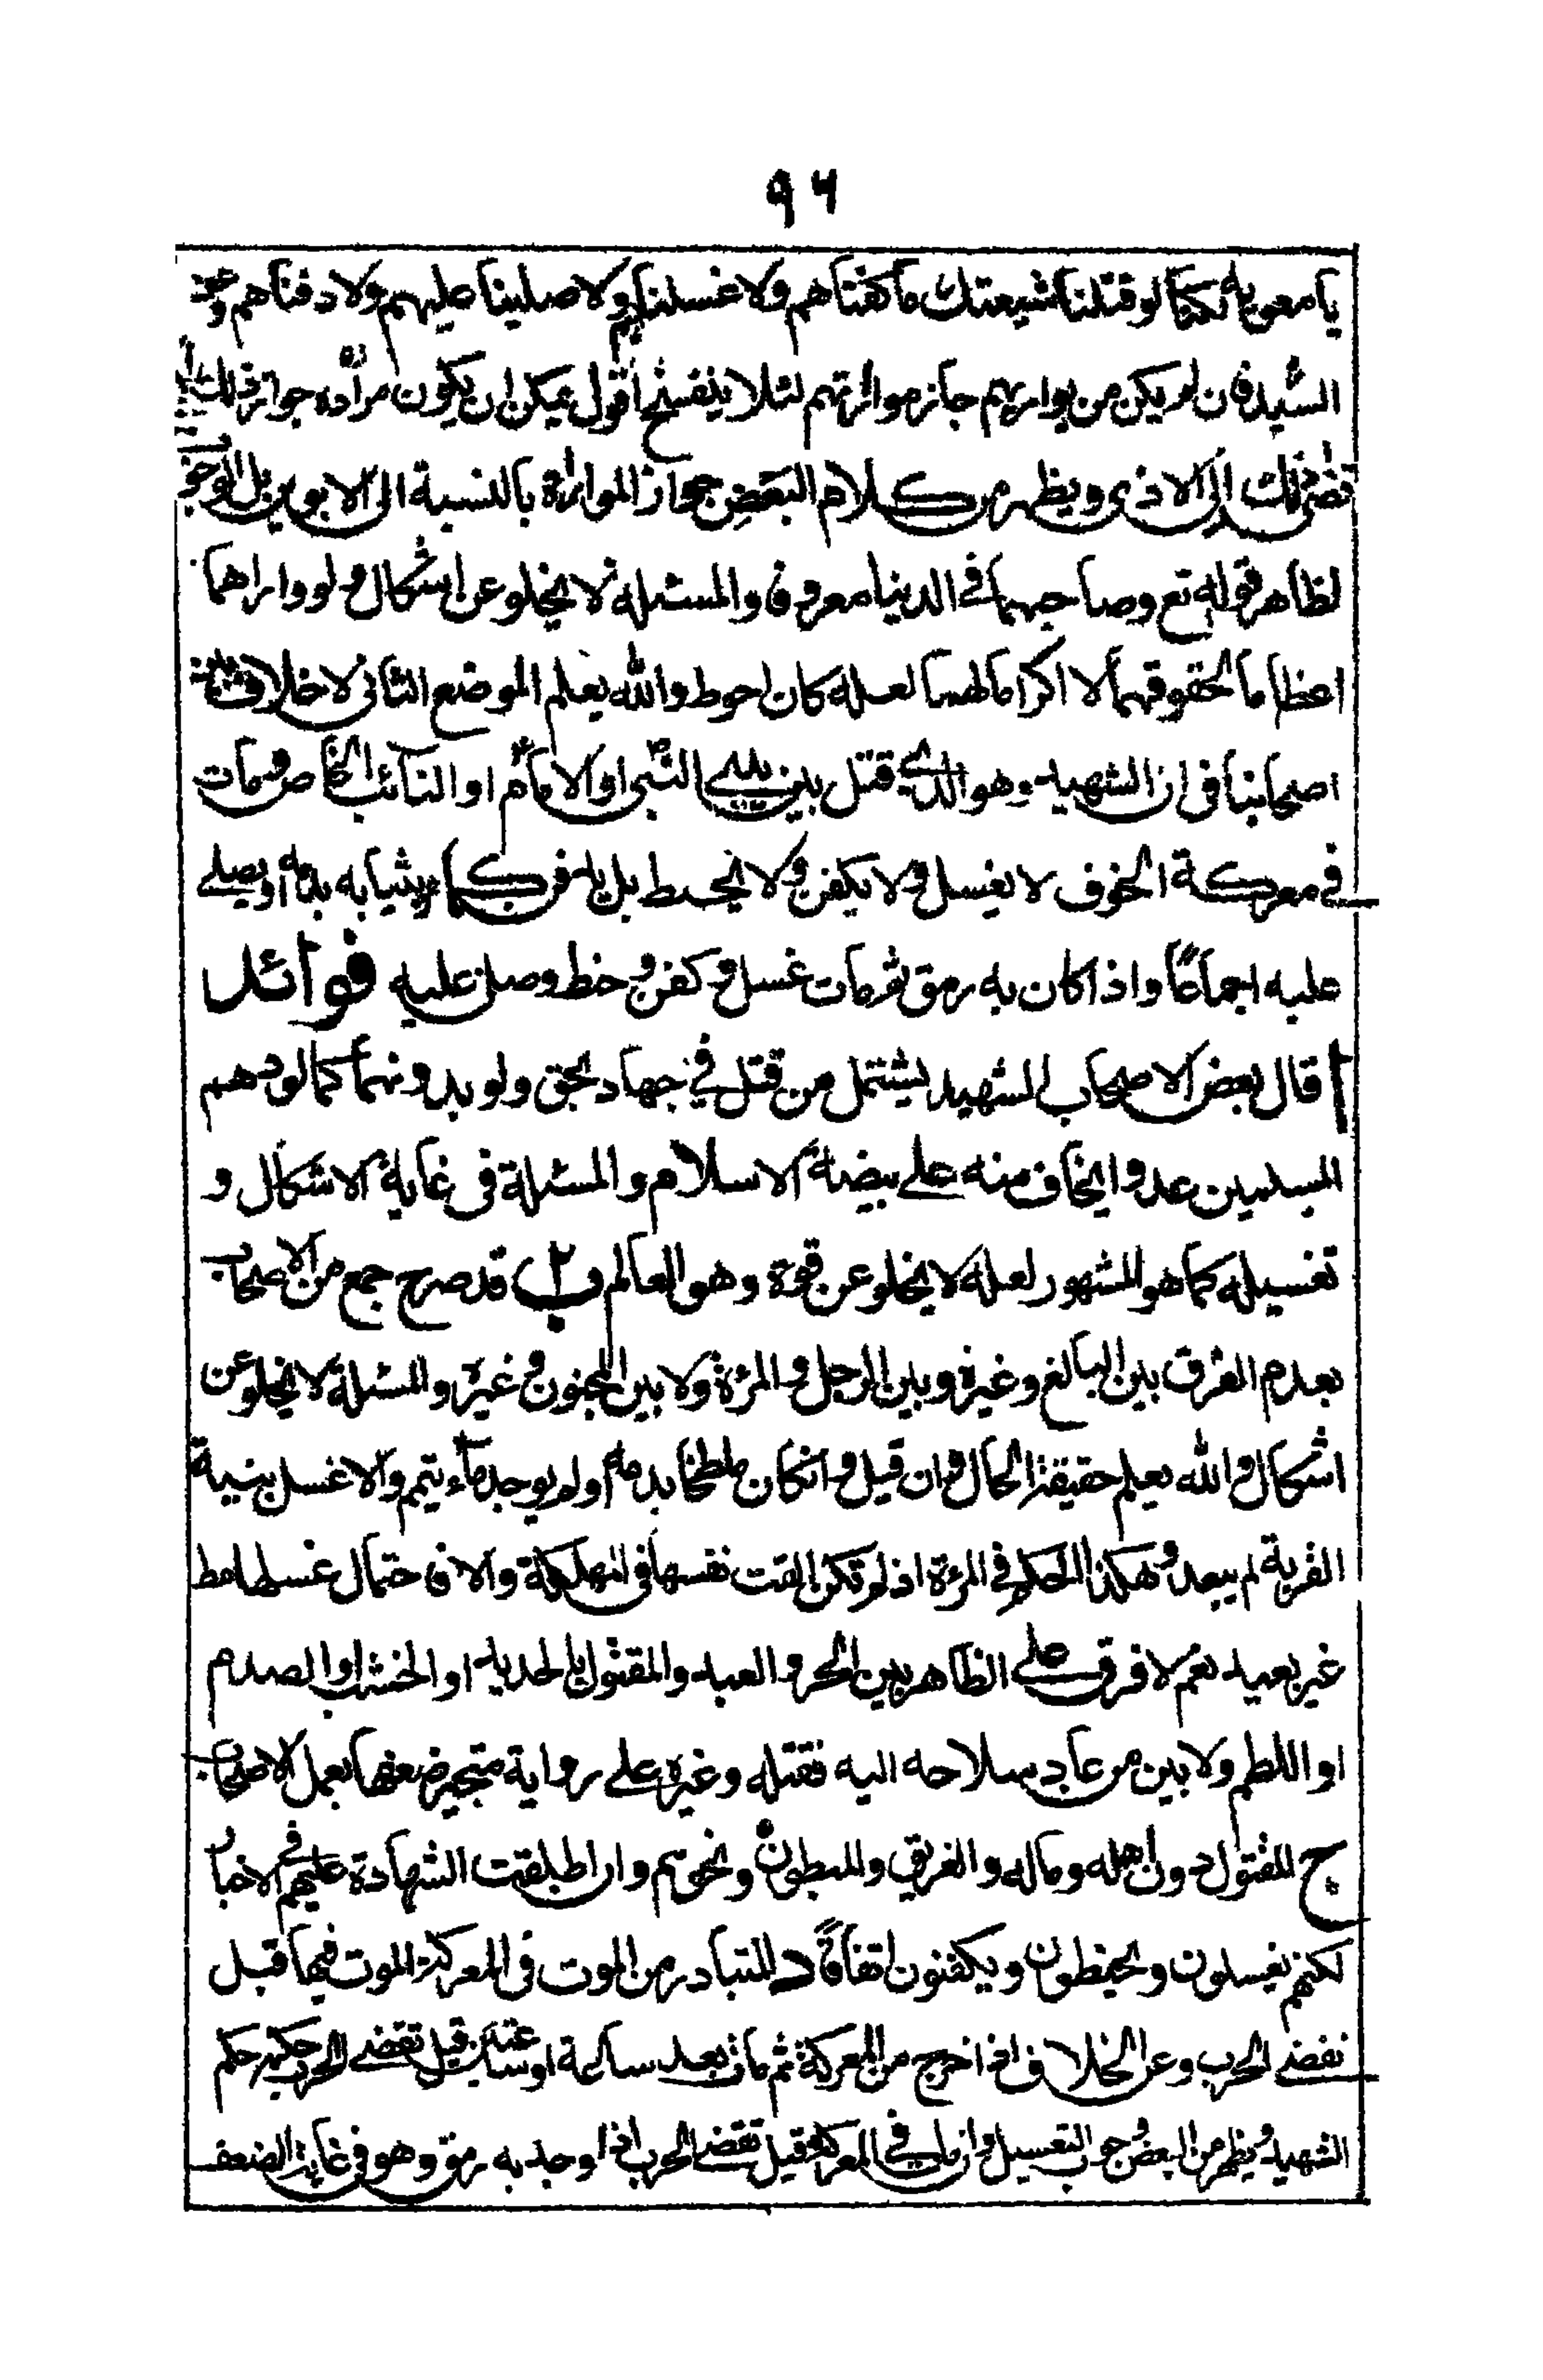 ٩٦
يا معوية لكنا لو قتلنا شيعتك ما كفناهم ولا غسلناهم ولا صلينا عليهم ولا دفناهم وعن
السيد فان لم يكن من يواريهم جاز مواراتهم لئلا ينفسخ اقول يمكن ان يكون مراده جواز ذلك
ذلك الى الاذى ويظهر من كلام البعض جواز المواراة بالنسبة الى الابوين بل الوجوب
لظاهر قوله تع وصاحبهما في الدنيا معروفا والمسئلة لا يخلو عن اشكال ولو واراهما
اعظاما لحقوقهما لا اكراما لهما لعله كان احوط والله يعلم الموضع الثاني لا خلاف بين
اصحابنا في ان الشهيد وهو الذي قتل بين يدي النبي ص او الامام ع او النائب الخاص ومات
في معركة الخوف لا يغسل ولا يكفن ولا يحنط بل يدفن بثيابه بدمائه ويصلي
عليه اجماعًا واذا كان به رمق ثم مات غسل وكفن وحنط وصلى عليه فوائد
ا قال بعض الاصحاب الشهيد يشتمل من قتل في جهاد بحق ولو بدونهما كما لو دهم
المسلمين عدو يخاف منه على بيضة الاسلام والمسئلة في غاية الاشكال و
تغسيله كما هو المشهور لعله لا يخلو عن قوة وهو العالم ب قد صرح جمع من الاصحاب
بعدم الفرق بين البالغ وغيره وبين الرجل والمرئة ولا بين المجنون وغيره والمسئلة لا يخلو عن
اشكال والله يعلم حقيقة الحال وان قيل وانكان ملطخا بدمه او لم يوجد ماء يتيمم والا غسل بنية
القربة لم يبعد وهكذا الحكم في المرئة اذ لم تكن القت نفسها في التهلكة والا فاحتمال غسلها
غير بعيد نعم لا فرق على الظاهر بين الحر والعبد والمقتول بالحديد او الخشب او الصدم
او اللطم ولا بين من عاد سلاحه اليه فقتله وغيره على رواية منجبر ضعفها بعمل الاصحاب
ج المقتول دون اهله وماله والغريق والمبطون ونحوهم وان اطلقت الشهادة عليهم في الاخبار
لكنهم يغسلون ويحنطون ويكفنون اتفاقًا د المتبادر من الموت في المعركة الموت فيها قبل
تقضي الحرب وعن الخلاف اذا اخرج من المعركة ثم مات بعد ساعة او ساعتين قبل تقضي الحرب حكمه حكم
الشهيد ويظهر من البعض وجوب التغسيل وان مات في المعركة وقبل تقضي الحرب اذا وجد به رمق وهو في غاية الضعف